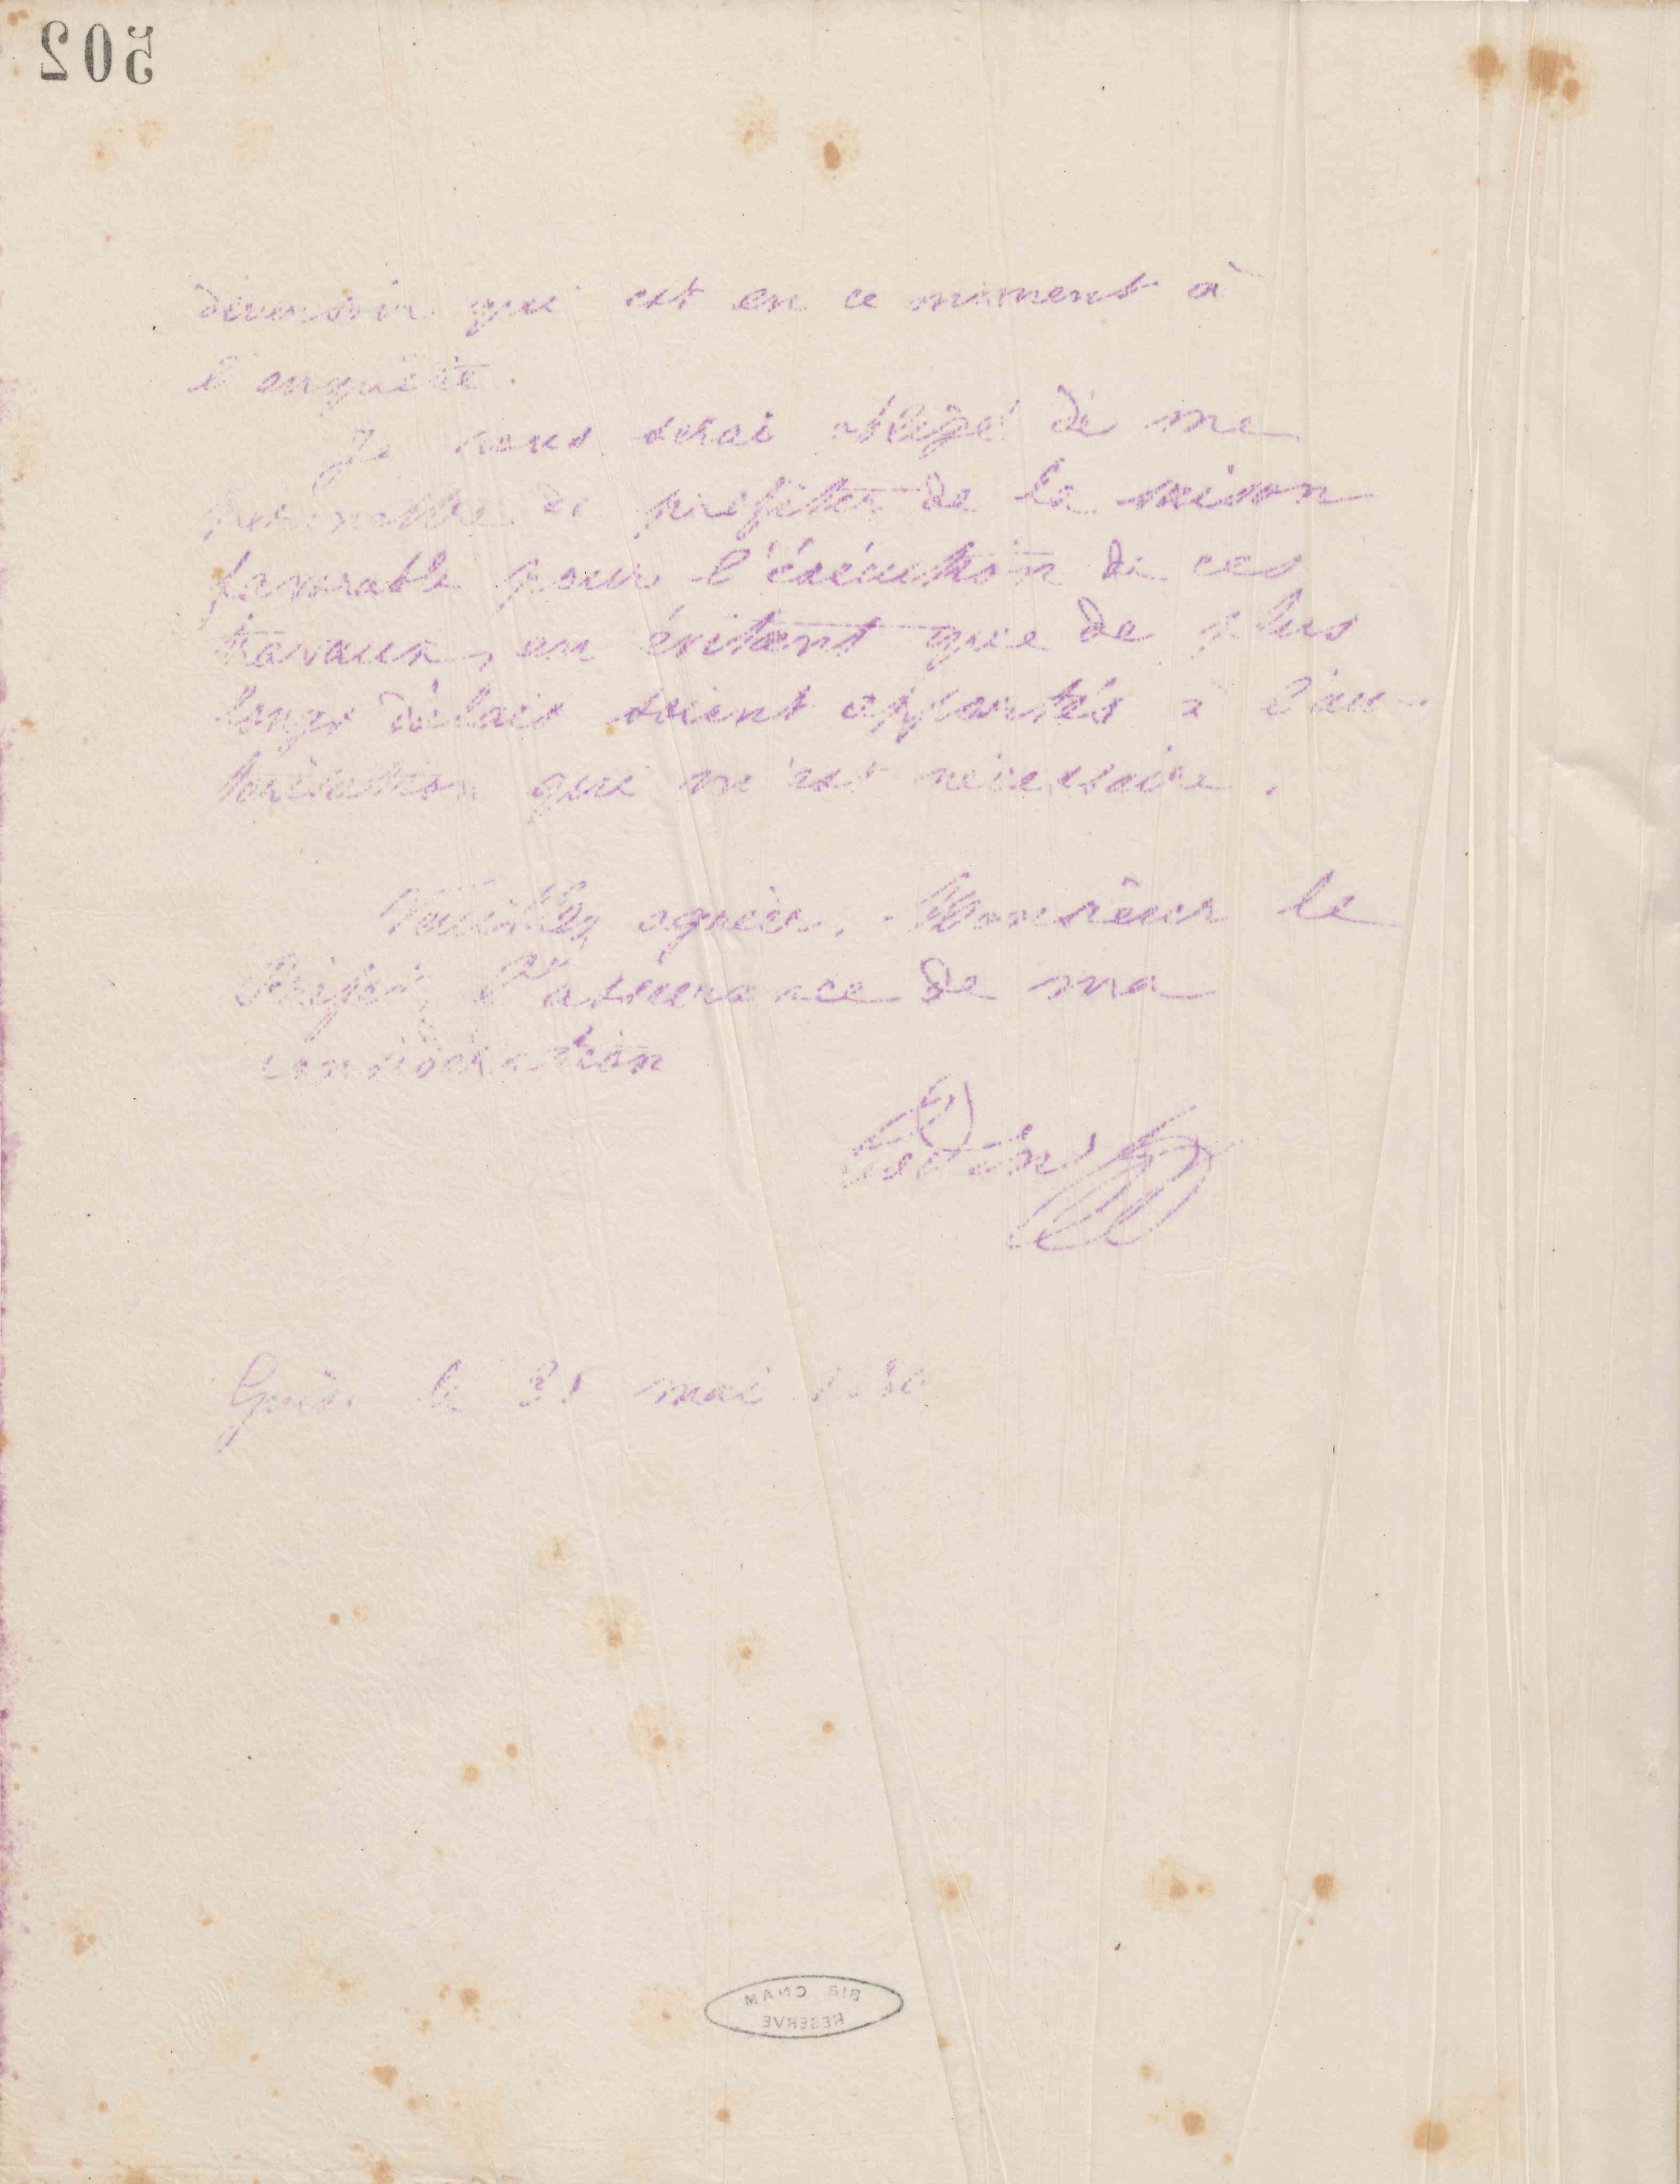 502
déversoir qui est en ce moment à
l'enquête.
Je vous serai obligé de me
permettre de profiter de la saison
favorable pour l'exécution de ces
travaux, en évitant que de plus
longs délais soient apportés à l'au-
torisation qui m'est nécessaire.
Veuillez agréer, Monsieur le
Préfet, l'assurance de ma
considération
Godin
Guise le 31 mai 1880
BIB CNAM
RESERVE